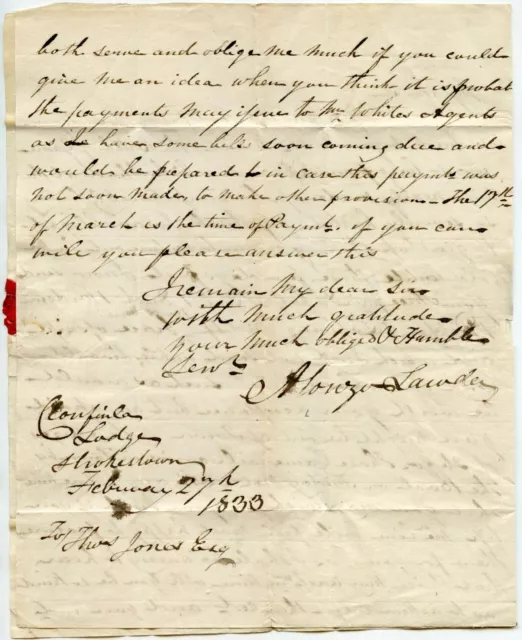 both serve and oblige me much if you could
give me an idea when you think it is probat
the payments may issue to Mr Whites Agents
as I have some bills soon coming due and
would be prepared in case this paymt was
not soon made, to make other provision - The 17th
of March is the time of Paymt. if you can
will you please answer this
I remain My dear Sir
with much gratitude
your much obliged & Humble
Servt
Alonzo Lawder
Clonfinla
Lodge
Strokestown
February 27th
1833
To Thos Jones Esq